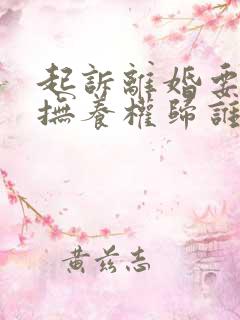 起訴離婚要
撫養權歸誰
黃茲志